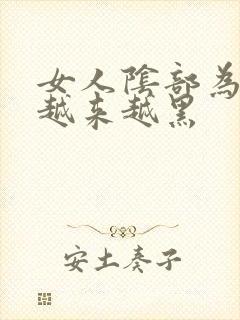 女人陰部為
越来越黑
安土奏子